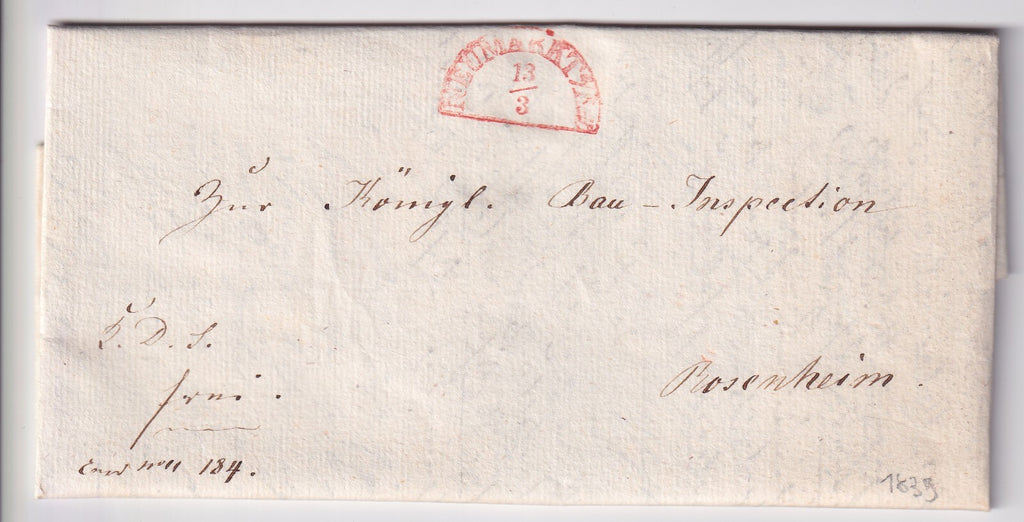 NEUMARKT
13
3
Zur Königl. Bau-Inspection
K. D. S.
Rosenheim.
frei.
184.
1839